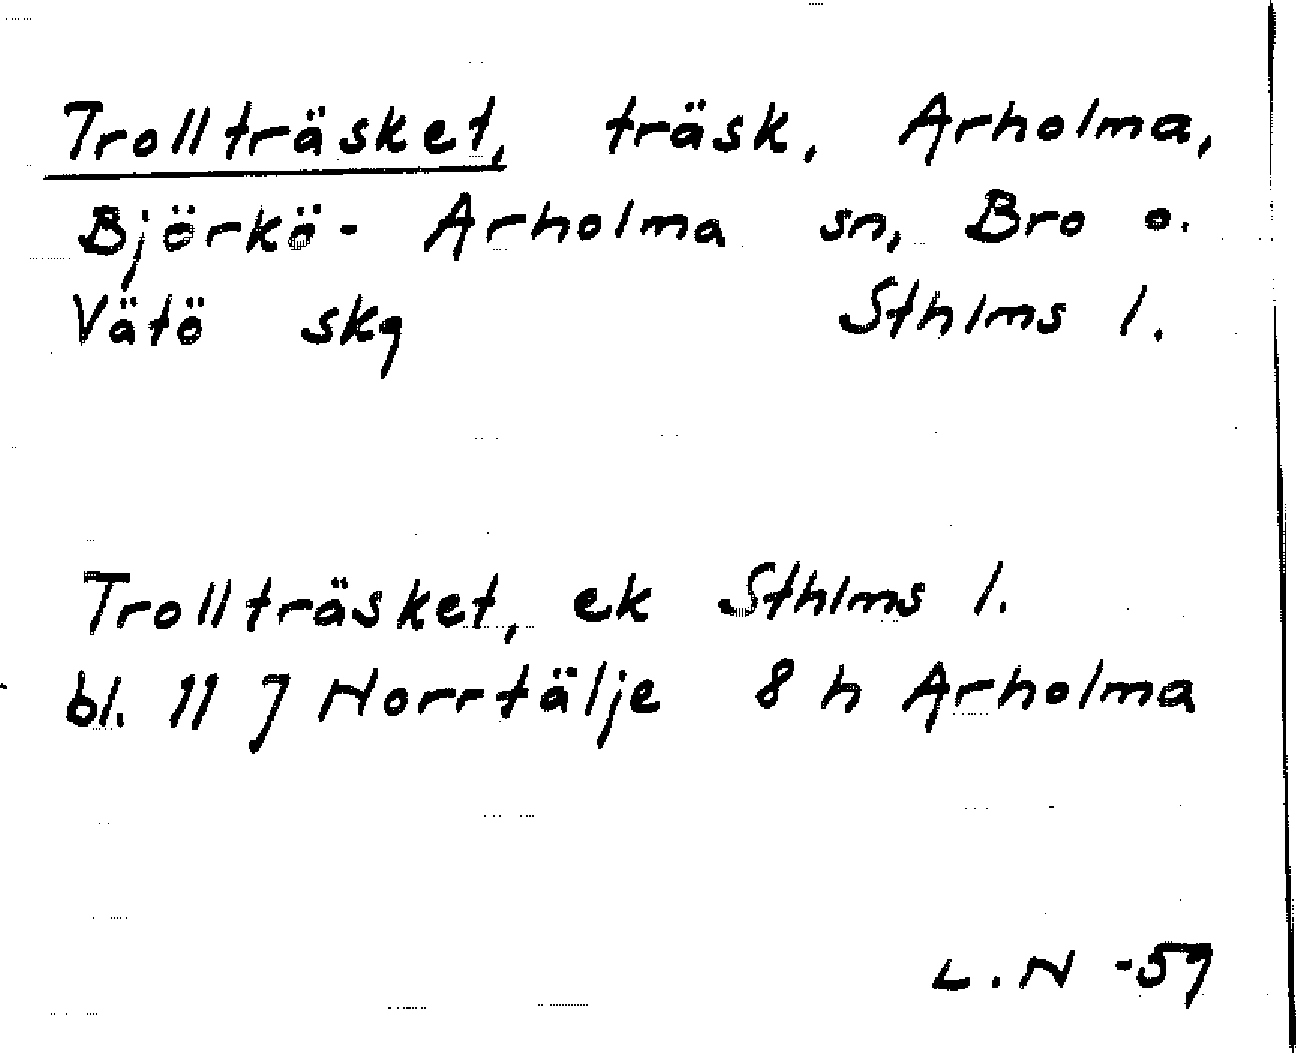 Trollträsket, träsk, Arholma,
Björkö- Arholma sn, Bro o.
Vätö skg Sthlms l.
Trollträsket, ek Sthlms l.
bl. 11 J Norrtälje 8 h Arholma
L.N -59